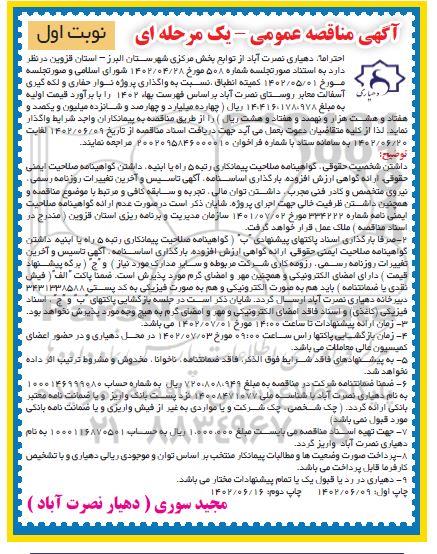 آگهی مناقصه عمومی – یک مرحله ای
نوبت اول
احتراما: دهیاری نصرت آباد از توابع بخش مرکزی شهرستان البرز – استان قزوین در نظر
دارد به استناد صورتجلسه شماره ۵۰۸ مورخ ۱۴۰۲/۰۴/۲۸ شورای اسلامی و صورتجلسه
مورخ ۱۴۰۲/۰۵/۰۱ کمیته انطباق، نسبت به واگذاری پروژه نوار حفاری و لکه گیری
آسفالت معابر روستای نصرت آباد بر اساس فهرست بهاء ۱۴۰۲ را با برآورد قیمت اولیه
به مبلغ ۱۴.۴۱۶.۱۷۸.۹۷۸ ریال (چهارده میلیارد و چهارصد و شانزده میلیون و یکصد و
هفتاد و هشت هزار و نهصد و هفتاد و هشت ریال) را از طریق مناقصه به پیمانکاران واجد شرایط واگذار
نماید. لذا از کلیه متقاضیان دعوت بعمل می آید جهت دریافت اسناد مناقصه از تاریخ ۱۴۰۲/۰۶/۰۹ لغایت
۱۴۰۲/۰۶/۲۰ به سامانه ستاد با شماره فراخوان ۲۰۰۲۰۹۵۸۴۶۰۰۰۰۱۰ مراجعه نمایند.
توضیح:
داشتن شخصیت حقوقی، گواهینامه صلاحیت پیمانکاری رتبه ۵ راه یا ابنیه، داشتن گواهینامه صلاحیت ایمنی
حقوقی، ارائه گواهی ارزش افزوده، بارگذاری اساسنامه، آگهی تاسیس و آخرین تغییرات روزنامه رسمی،
نیروی متخصص و کادر فنی مجرب، داشتن توان مالی، تجربه و سابقه کافی و مرتبط با موضوع مناقصه و
همچنین داشتن ظرفیت خالی جهت اجرای پروژه، شایان ذکر است در صورت عدم ارائه گواهینامه صلاحیت
ایمنی نامه شماره ۳۳۴۲۲۲ مورخ ۱۴۰۱/۰۷/۰۲ سازمان مدیریت و برنامه ریزی استان قزوین (مندرج در
اسناد مناقصه) ملاک عمل قرار خواهد گرفت.
۲-صرفا بارگذاری اسناد پاکتهای پیشنهادی "ب" (گواهینامه صلاحیت پیمانکاری رتبه ۵ راه یا ابنیه، داشتن
گواهینامه صلاحیت ایمنی حقوقی، ارائه گواهی ارزش افزوده، بارگذاری اساسنامه، آگهی تاسیس و آخرین
تغییرات روزنامه رسمی، رزومه کاری شرکت مربوطه و سایر مدارک مورد نیاز) و "ج" (برگه پیشنهاد
قیمت) دارای امضای الکترونیکی و همچنین مهر و امضای گرم مورد پذیرش است. ضمنا پاکت "الف" (فیش
نقدی یا ضمانتنامه) باید هم به صورت الکترونیکی و هم به صورت فیزیکی به کد پستی ۳۴۳۱۳۳۸۵۸۸
دبیرخانه دهیاری نصرت آباد ارسال گردد. شایان ذکر است در جلسه بازگشایی پاکتهای "ب" و "ج"، اسناد
فیزیکی (کاغذی) و اسناد فاقد امضای الکترونیکی و مهر و امضای گرم به هیچ وجه مورد پذیرش نخواهد بود.
۳- زمان ارائه پیشنهادات تا ساعت ۱۴:۰۰ مورخ ۱۴۰۲/۰۷/۰۱ می باشد.
۴- زمان بازگشایی پاکتها راس ساعت ۰۹:۰۰ مورخ ۱۴۰۲/۰۷/۰۳ در محل دهیاری و در حضور اعضای
کمیسیون عالی معاملات می باشد.
۵- به پیشنهادهای فاقد شرایط فوق الذکر، فاقد ضمانتنامه، ناخوانا، مخدوش و مشروط ترتیب اثر داده
نخواهد شد.
۶- ضمنا ضمانتنامه شرکت در مناقصه به مبلغ ۷۲۰.۸۰۸.۹۴۹ ریال به شماره حساب ۱۰۰۰۱۴۶۹۹۹۰۸۰
به نام دهیاری نصرت آباد با شناسه ملی ۱۴۰۰۸۴۷۱۰۷۷ نزد پست بانک واریز و یا ضمانت نامه معتبر
بانکی ارائه گردد. (چک شخصی، چک شرکت و یا مواردی به غیر از فیش واریزی و یا ضمانت نامه بانکی
مورد قبول نمی باشد)
۷- جهت تهیه اسناد مناقصه می بایست مبلغ ۱.۰۰۰.۰۰۰ ریال به حساب ۱۰۰۰۱۱۶۸۷۰۵۰۱ به نام
دهیاری نصرت آباد واریز گردد.
۸-پرداخت صورت وضعیت ها و مطالبات پیمانکار منتخب بر اساس توان و موجودی ریالی دهیاری و با تشخیص
کارفرما قابل پرداخت می باشد.
۹- دهیاری در رد یا قبول یک یا تمام پیشنهادات مختار می باشد.
چاپ اول: ۱۴۰۲/۰۶/۰۹ چاپ دوم: ۱۴۰۲/۰۶/۱۶
مجید سوری (دهیار نصرت آباد)
دهیاری